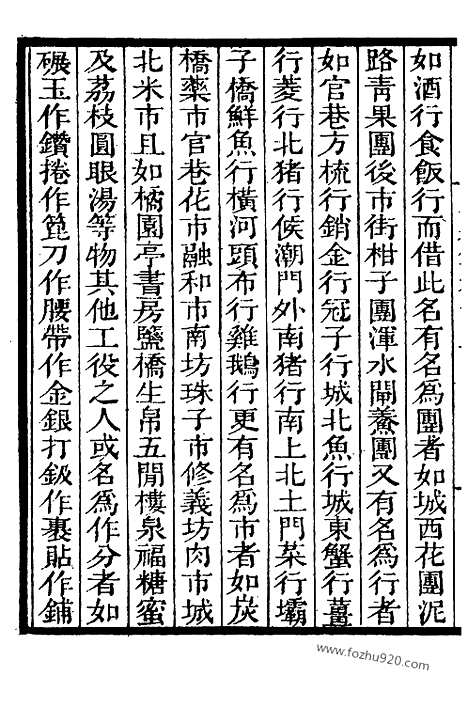 如酒行食飯行而借此名有名爲團者如城西花團泥
路青果團後市街柑子團渾水閘鯗團又有名爲行者
如官巷方梳行銷金行冠子行城北魚行城東蟹行薑
行菱行北猪行候潮門外南猪行南土北土門菜行壩
子橋鮮魚行橫河頭布行雞鵝行更有名爲市者如炭
橋藥市官巷花市融和市南坊珠子市修義坊肉市城
北米市且如橘園亭書房鹽橋生帛五閒樓泉福糖蜜
及荔枝圓眼湯等物其他工役之人或名爲作分者如
碾玉作鑽捲作篦刀作腰帶作金銀打鈒作裹貼作鋪
www.fozhu920.com